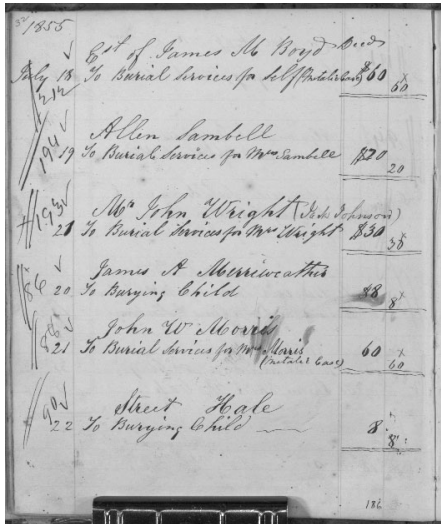 1855
Est of James M Boyd Decd
July 18 To Burial Services for Self (Metalic Case) $60 60
212
Allen Sambell
194
19 To Burial Services for Mrs Sambell $20 20
193
Mr John Wright (
21 To Burial Services for Mrs Wright $30 30
James A Merriweather
86
20 To Burying Child $8 8
John W Morris
88
21 To Burial Services for Mrs Morris 60 60
(Metalic Case)
Street Hale
90
22 To Burying Child 8 8
186